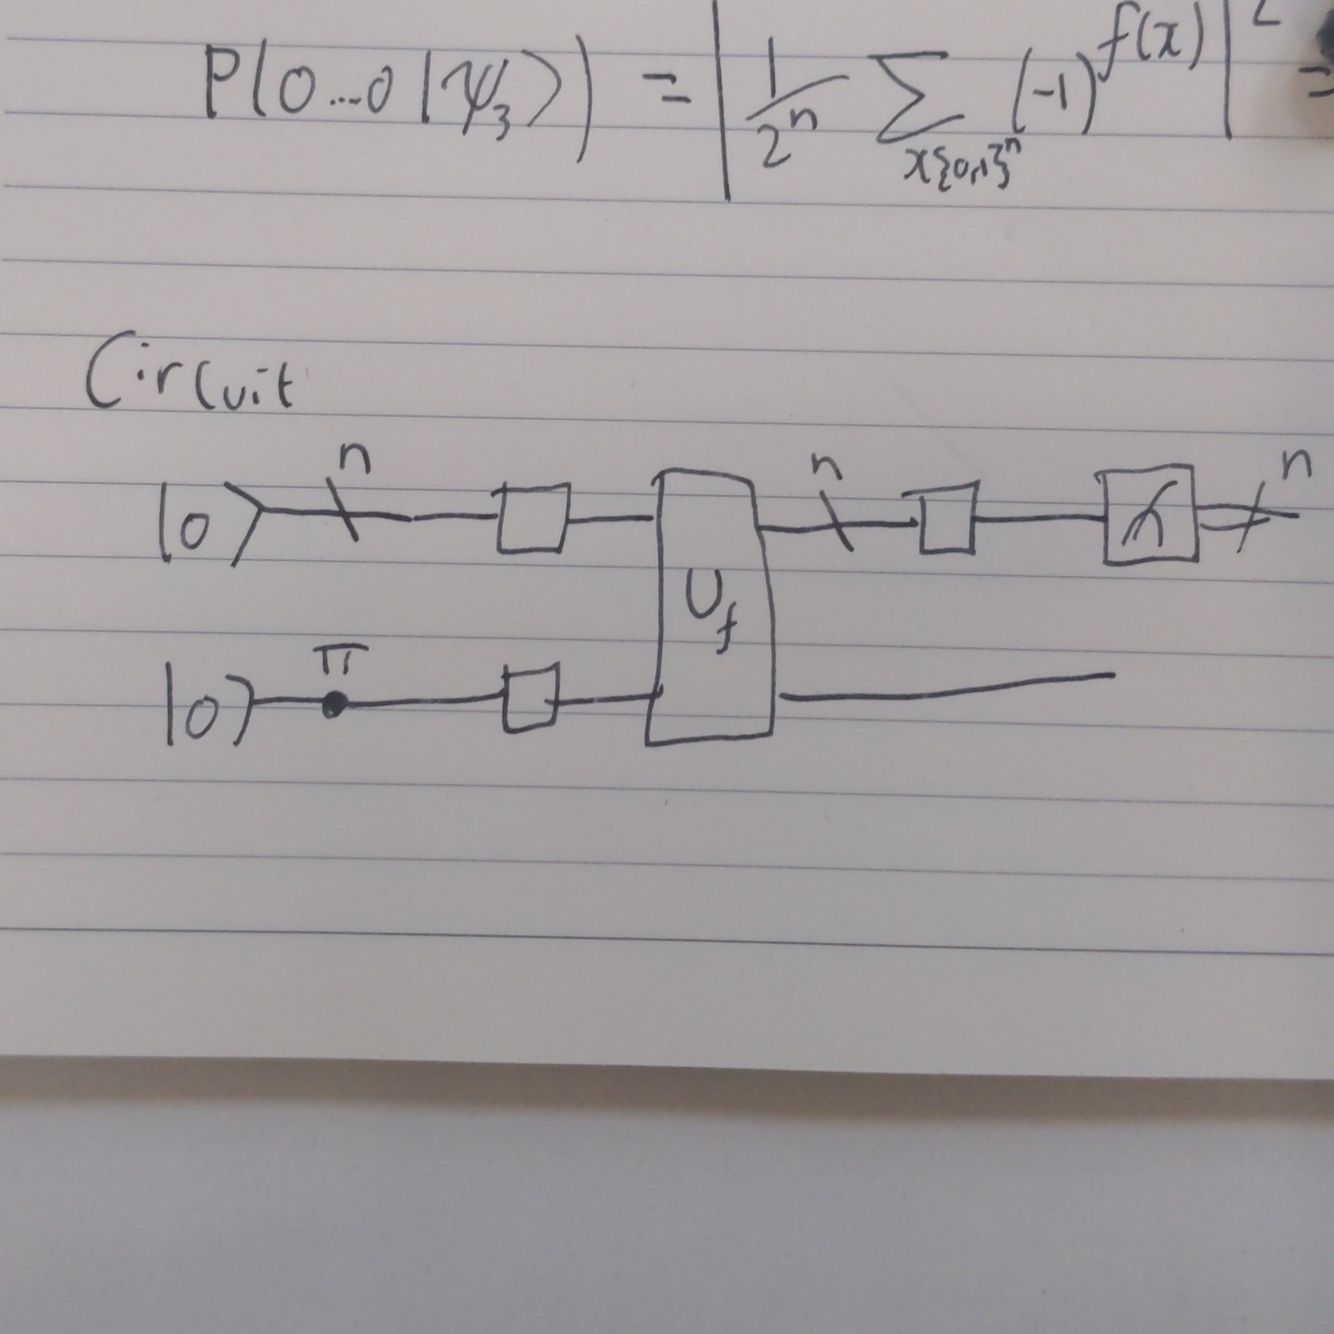 P(0...0 | ψ₃⟩) = | 1/2ⁿ ∑ x{0,1}ⁿ (-1)^f(x) |² =
Circuit
n n n
|0⟩
U_f
π
|0⟩